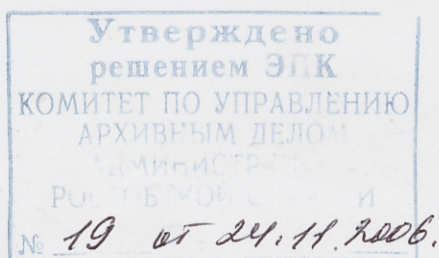 Утверждено
решением ЭПК
КОМИТЕТ ПО УПРАВЛЕНИЮ
АРХИВНЫМ ДЕЛОМ
АДМИНИСТРАЦИИ
РОСТОВСКОЙ ОБЛАСТИ
№ 19 от 24.11.2006.